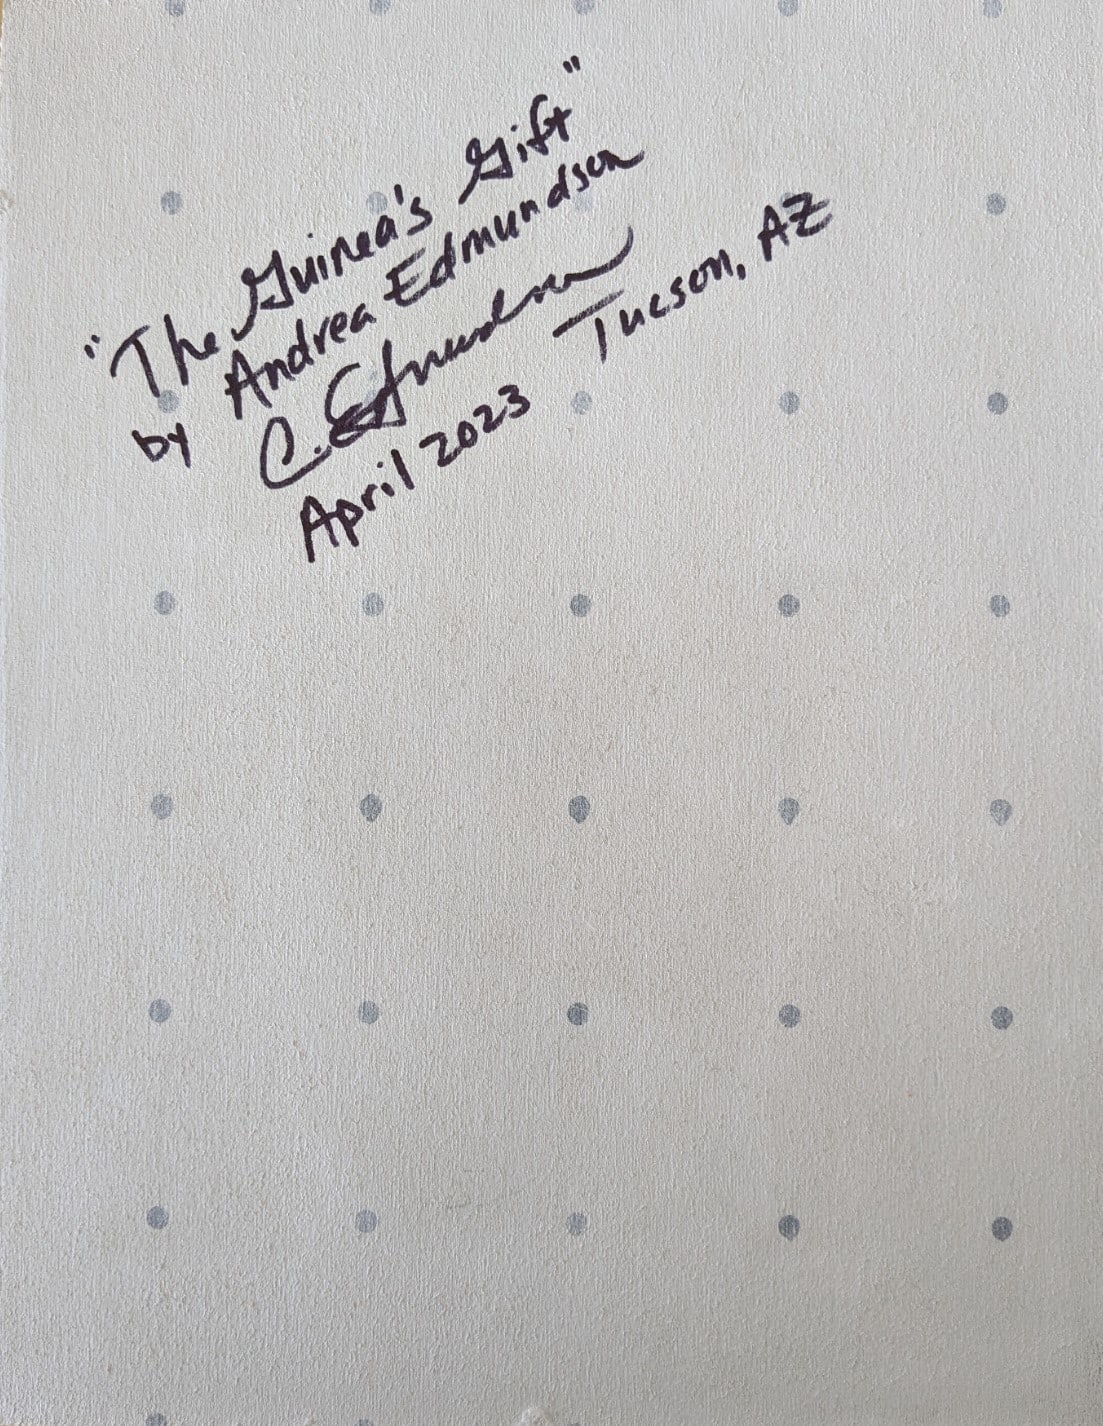 "The Guinea's Gift"
by Andrea Edmundson
C. Edmundson
Tucson, AZ
April 2023